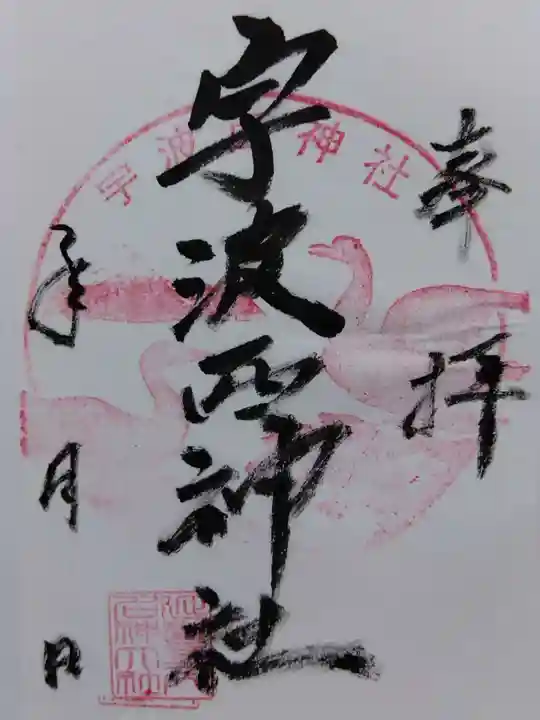 奉拝
宇波西神社
年 月 日
宇波西神社